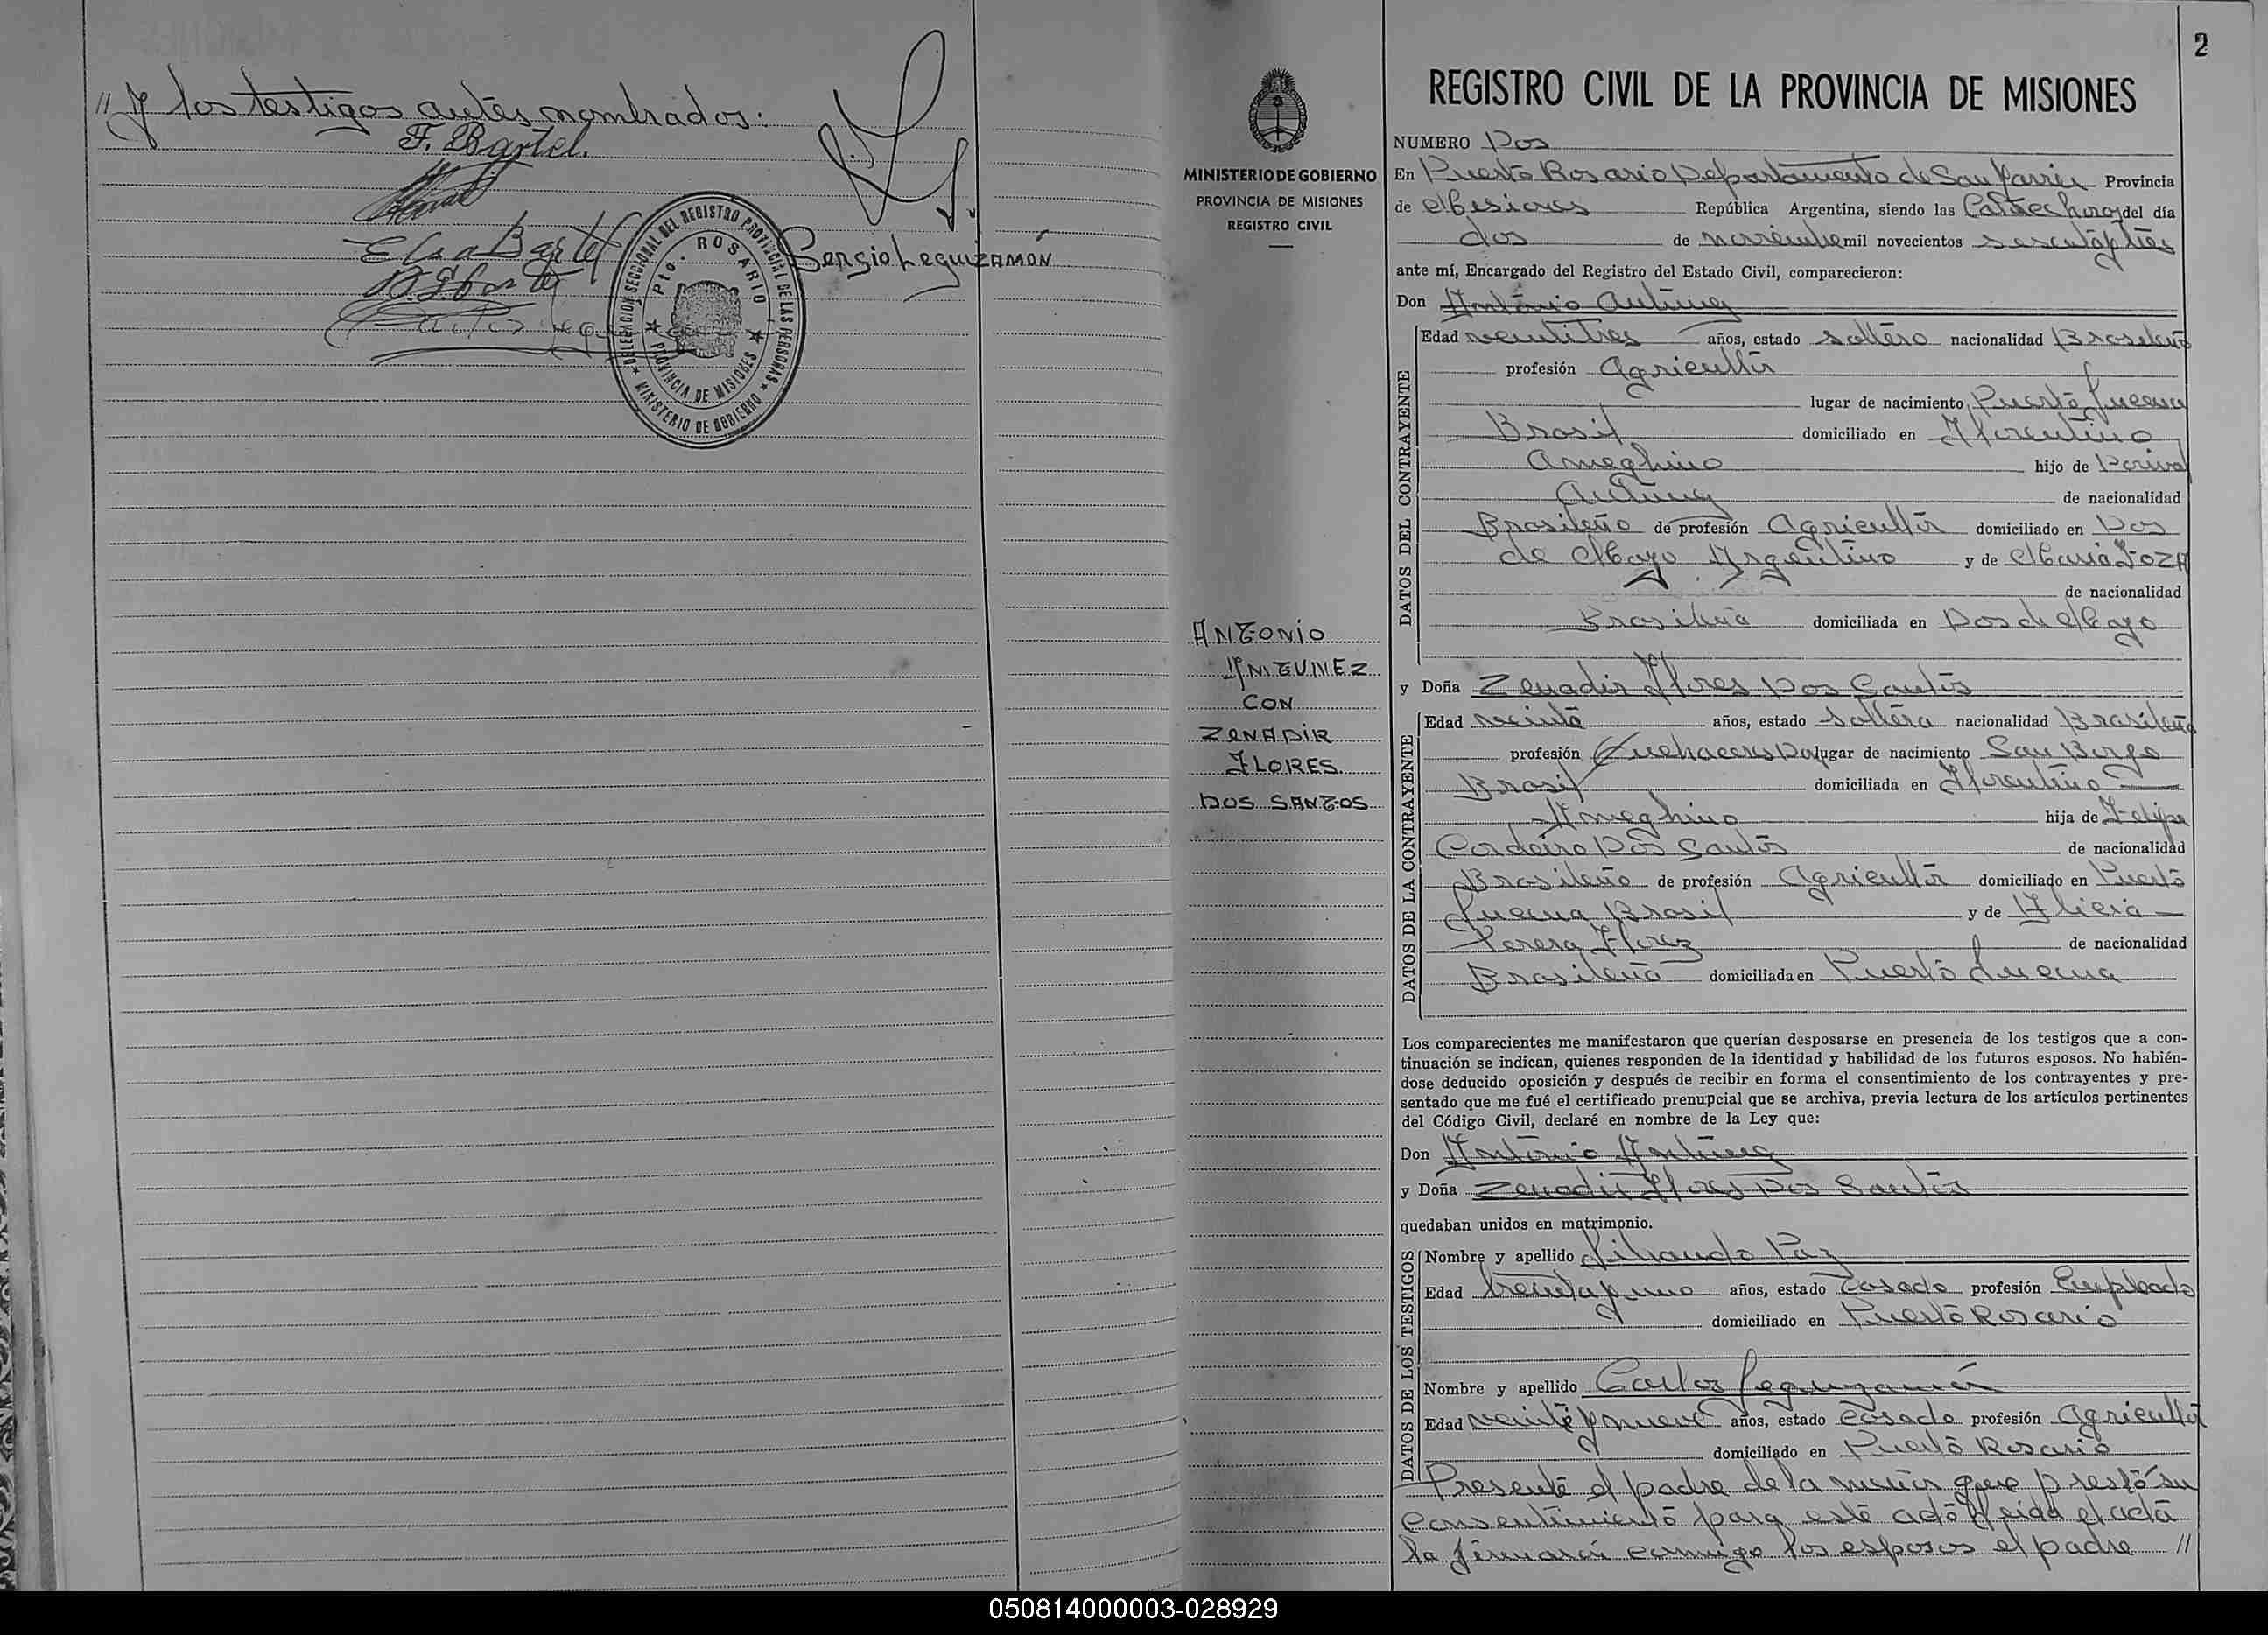 // Y los testigos antes nombrados:
F. Bartel.
Elsa Bartel
Sergio Leguizamón
DELEGACION SECCIONAL DEL REGISTRO PROVINCIAL DE LAS PERSONAS
Pto. ROSARIO
PROVINCIA DE MISIONES
MINISTERIO DE GOBIERNO
MINISTERIO DE GOBIERNO
PROVINCIA DE MISIONES
REGISTRO CIVIL
ANTONIO
ANTUNEZ
CON
ZENADIR
FLORES
DOS SANTOS
2
REGISTRO CIVIL DE LA PROVINCIA DE MISIONES
NUMERO Dos
En Puerto Rosario Departamento de San Javier Provincia
de Misiones República Argentina, siendo las Catorce horas del día
dos de noviembre mil novecientos sesenta y tres
ante mí, Encargado del Registro del Estado Civil, comparecieron:
Don Antonio Antunez
DATOS DEL CONTRAYENTE
Edad veintitres años, estado soltero nacionalidad Brasileño
profesión Agricultor
lugar de nacimiento Puerto Lucena
Brasil domiciliado en Florentino
Ameghino hijo de
Antunez de nacionalidad
Brasileño de profesión Agricultor domiciliado en Dos
de Mayo Argentino y de Maria
de nacionalidad
Brasileña domiciliada en Dos de Mayo
y Doña Zenadir Flores Dos Santos
DATOS DE LA CONTRAYENTE
Edad veinte años, estado soltera nacionalidad Brasileña
profesión Quehaceres Do lugar de nacimiento San Borja
Brasil domiciliada en Florentino
Ameghino hija de Felipe
Cordeiro Dos Santos de nacionalidad
Brasileño de profesión Agricultor domiciliado en Puerto
Lucena Brasil y de
Perera Florez de nacionalidad
Brasileña domiciliada en Puerto Lucena
Los comparecientes me manifestaron que querían desposarse en presencia de los testigos que a con-
tinuación se indican, quienes responden de la identidad y habilidad de los futuros esposos. No habién-
dose deducido oposición y después de recibir en forma el consentimiento de los contrayentes y pre-
sentado que me fué el certificado prenupcial que se archiva, previa lectura de los artículos pertinentes
del Código Civil, declaré en nombre de la Ley que:
Don Antonio Antunez
y Doña Zenadir Flores Dos Santos
quedaban unidos en matrimonio.
DATOS DE LOS TESTIGOS
Nombre y apellido Paz
Edad treinta y uno años, estado Casado profesión Empleado
domiciliado en Puerto Rosario
Nombre y apellido Carlos Leguizamón
Edad veinte y nueve años, estado Casado profesión Agricultor
domiciliado en Puerto Rosario
Presente el padre de la menor que prestó su
consentimiento para este acto leida el acta
la firmarán conmigo los esposos el padre //
050814000003-028929